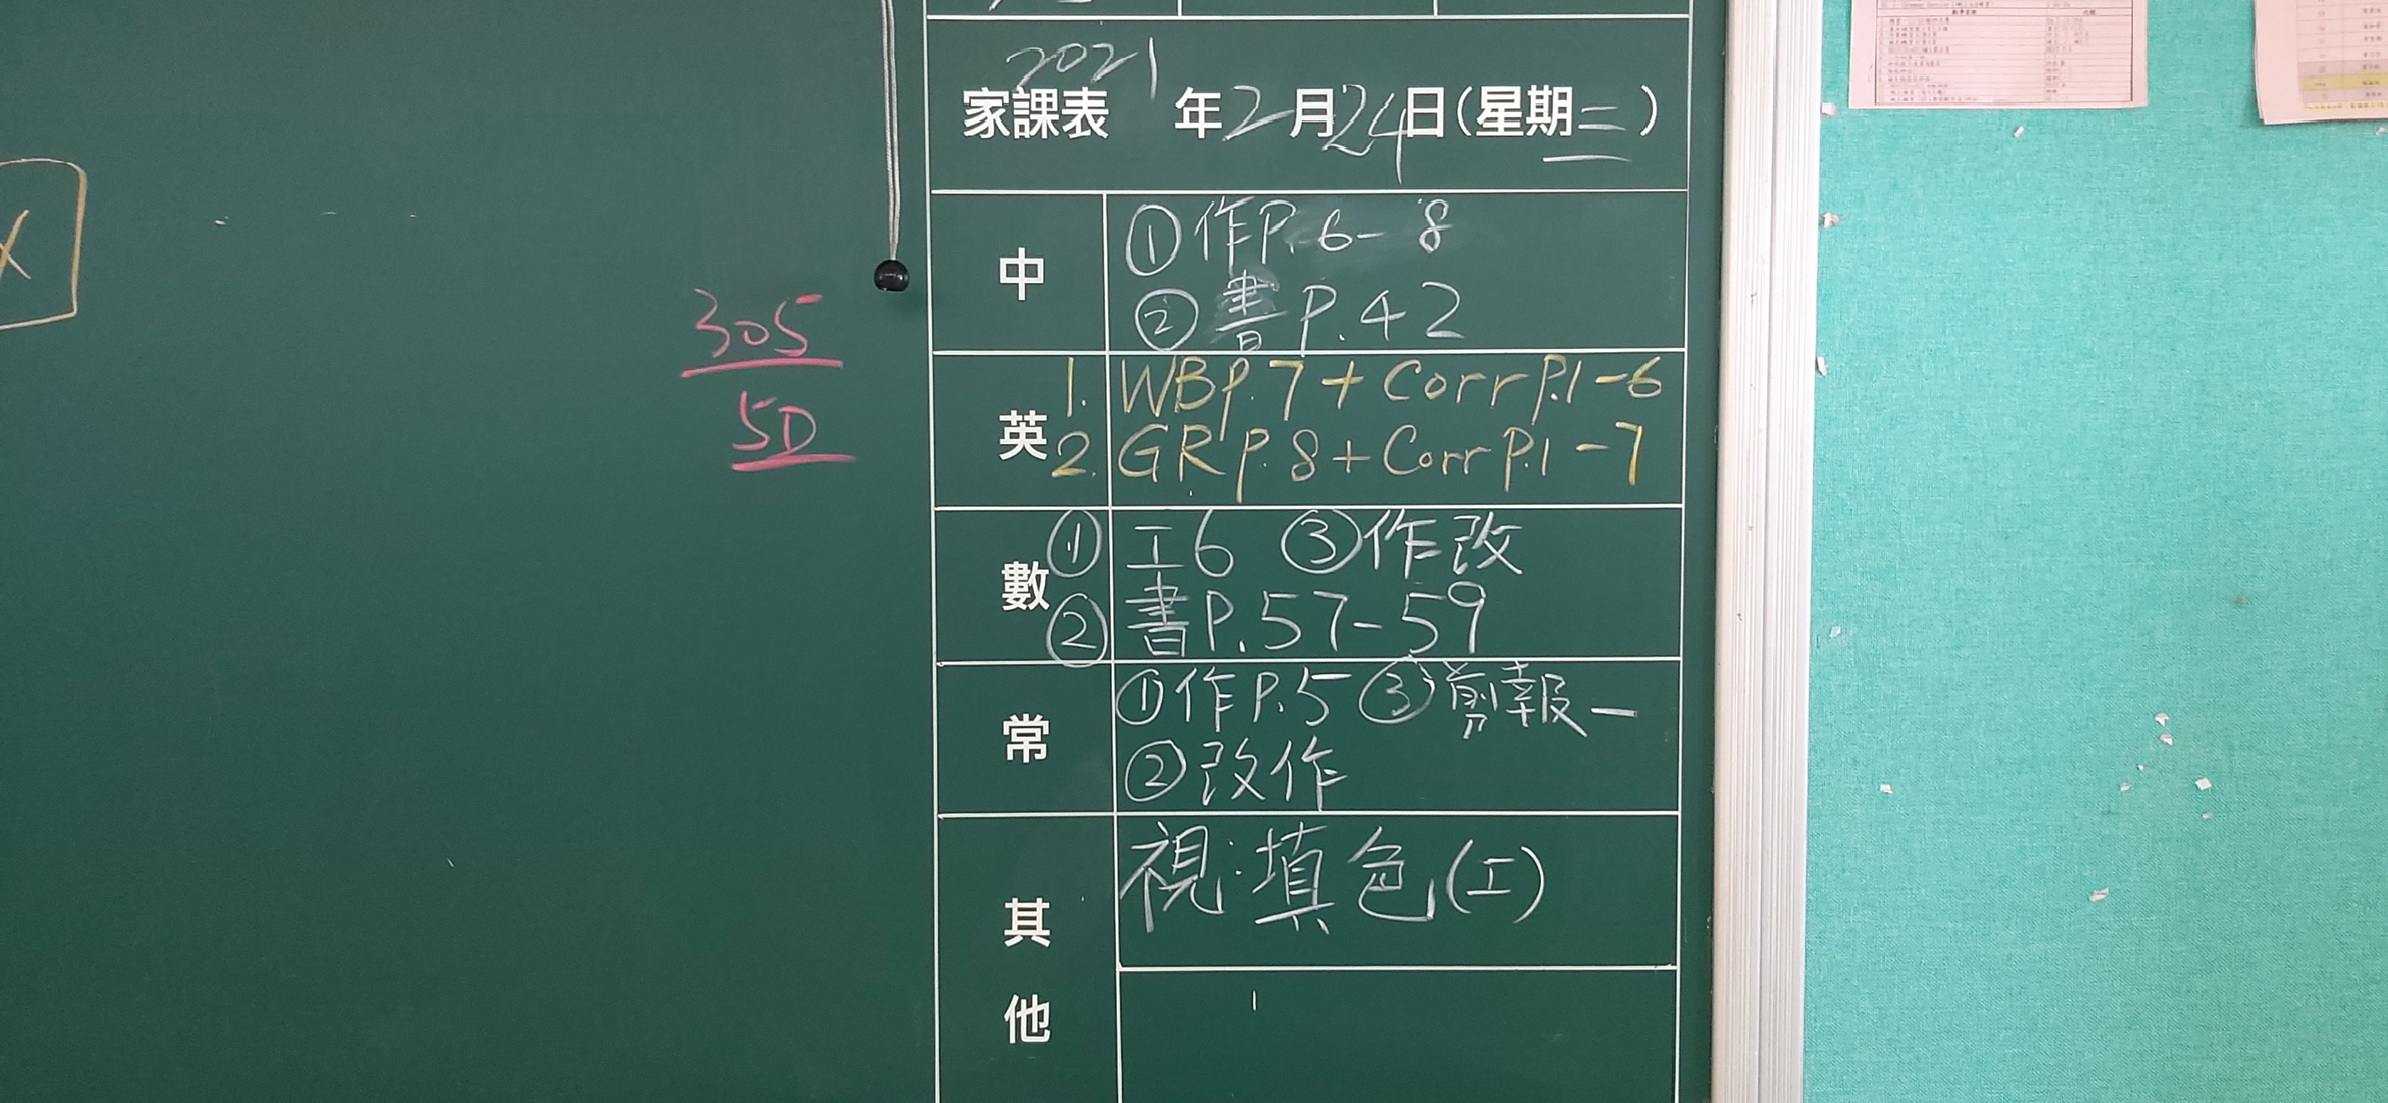 家課表 2021年2月24日(星期三)
中
①作P.6-8
②書P.42
英
1. WB p.7 + Corr P.1-6
2. GR p.8 + Corr P.1-7
數
①工6 ③作改
②書P.57-59
常
①作P.5 ③剪報一
②改作
其他
視:填色(工)
305
5D
X